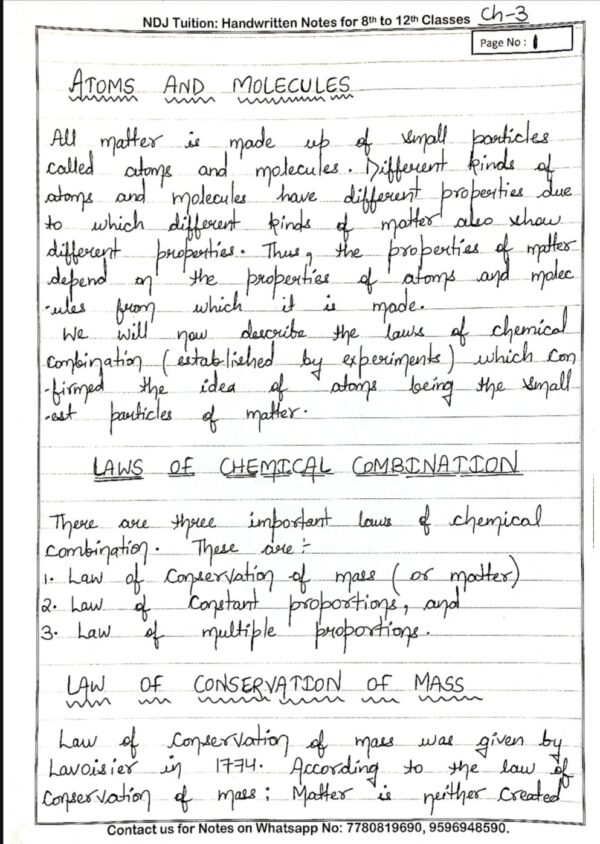 NDJ Tuition: Handwritten Notes for 8th to 12th Classes Ch-3
Page No: 1
ATOMS AND MOLECULES
All matter is made up of small particles
called atoms and molecules. Different kinds of
atoms and molecules have different properties due
to which different kinds of matter also show
different properties. Thus, the properties of matter
depend on the properties of atoms and molec
-ules from which it is made.
We will now describe the laws of chemical
combination (established by experiments) which con
-firmed the idea of atoms being the small
-est particles of matter.
LAWS OF CHEMICAL COMBINATION
There are three important laws of chemical
combination. These are:-
1. Law of conservation of mass (or matter)
2. Law of constant proportions, and
3. Law of multiple proportions.
LAW OF CONSERVATION OF MASS
Law of conservation of mass was given by
Lavoisier in 1774. According to the law of
conservation of mass; Matter is neither created
Contact us for Notes on Whatsapp No: 7780819690, 9596948590.